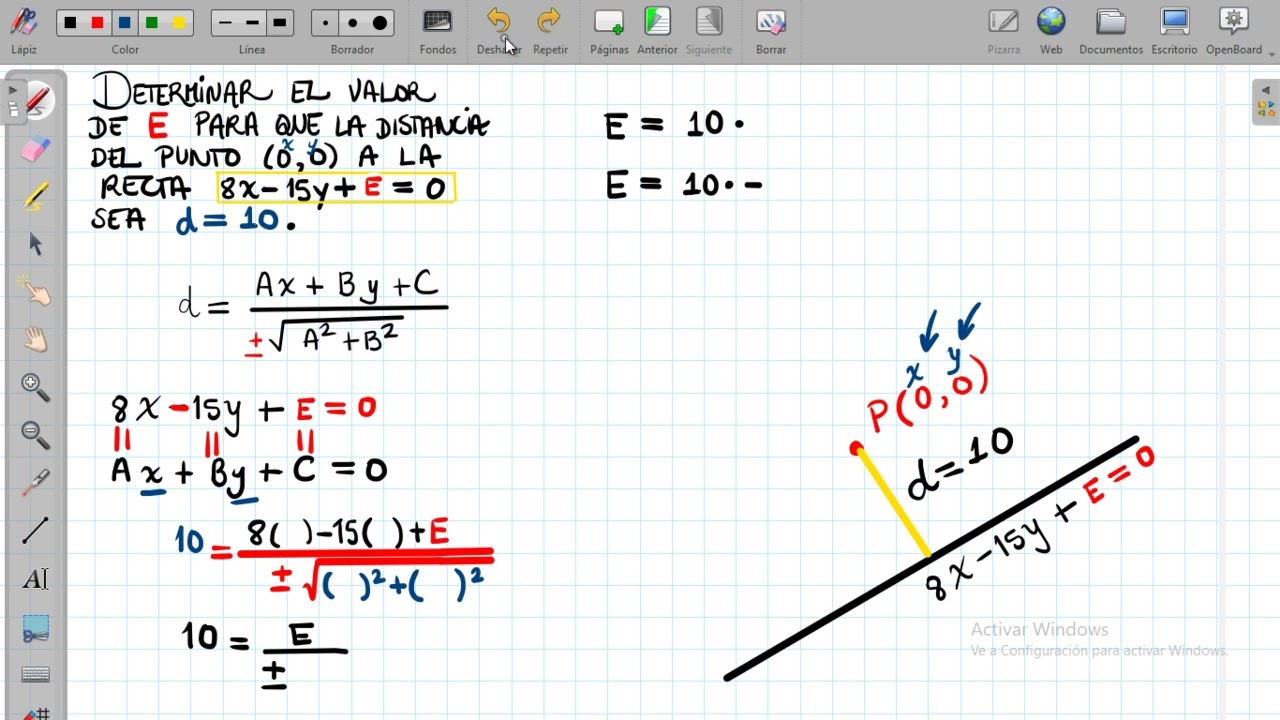 Lápiz Color Línea Borrador Fondos Deshacer Repetir Páginas Anterior Siguiente Borrar Pizarra Web Documentos Escritorio OpenBoard
DETERMINAR EL VALOR
DE E PARA QUE LA DISTANCIA
DEL PUNTO (0, 0) A LA
x y
RECTA 8x - 15y + E = 0
SEA d = 10.
d = Ax + By + C
± √ A² + B²
8x - 15y + E = 0
|| || ||
Ax + By + C = 0
10 = 8( ) - 15( ) + E
± √( )² + ( )²
10 = E
±
E = 10 ·
E = 10 · -
x y
P(0, 0)
d = 10
8x - 15y + E = 0
AI
Activar Windows
Ve a Configuración para activar Windows.